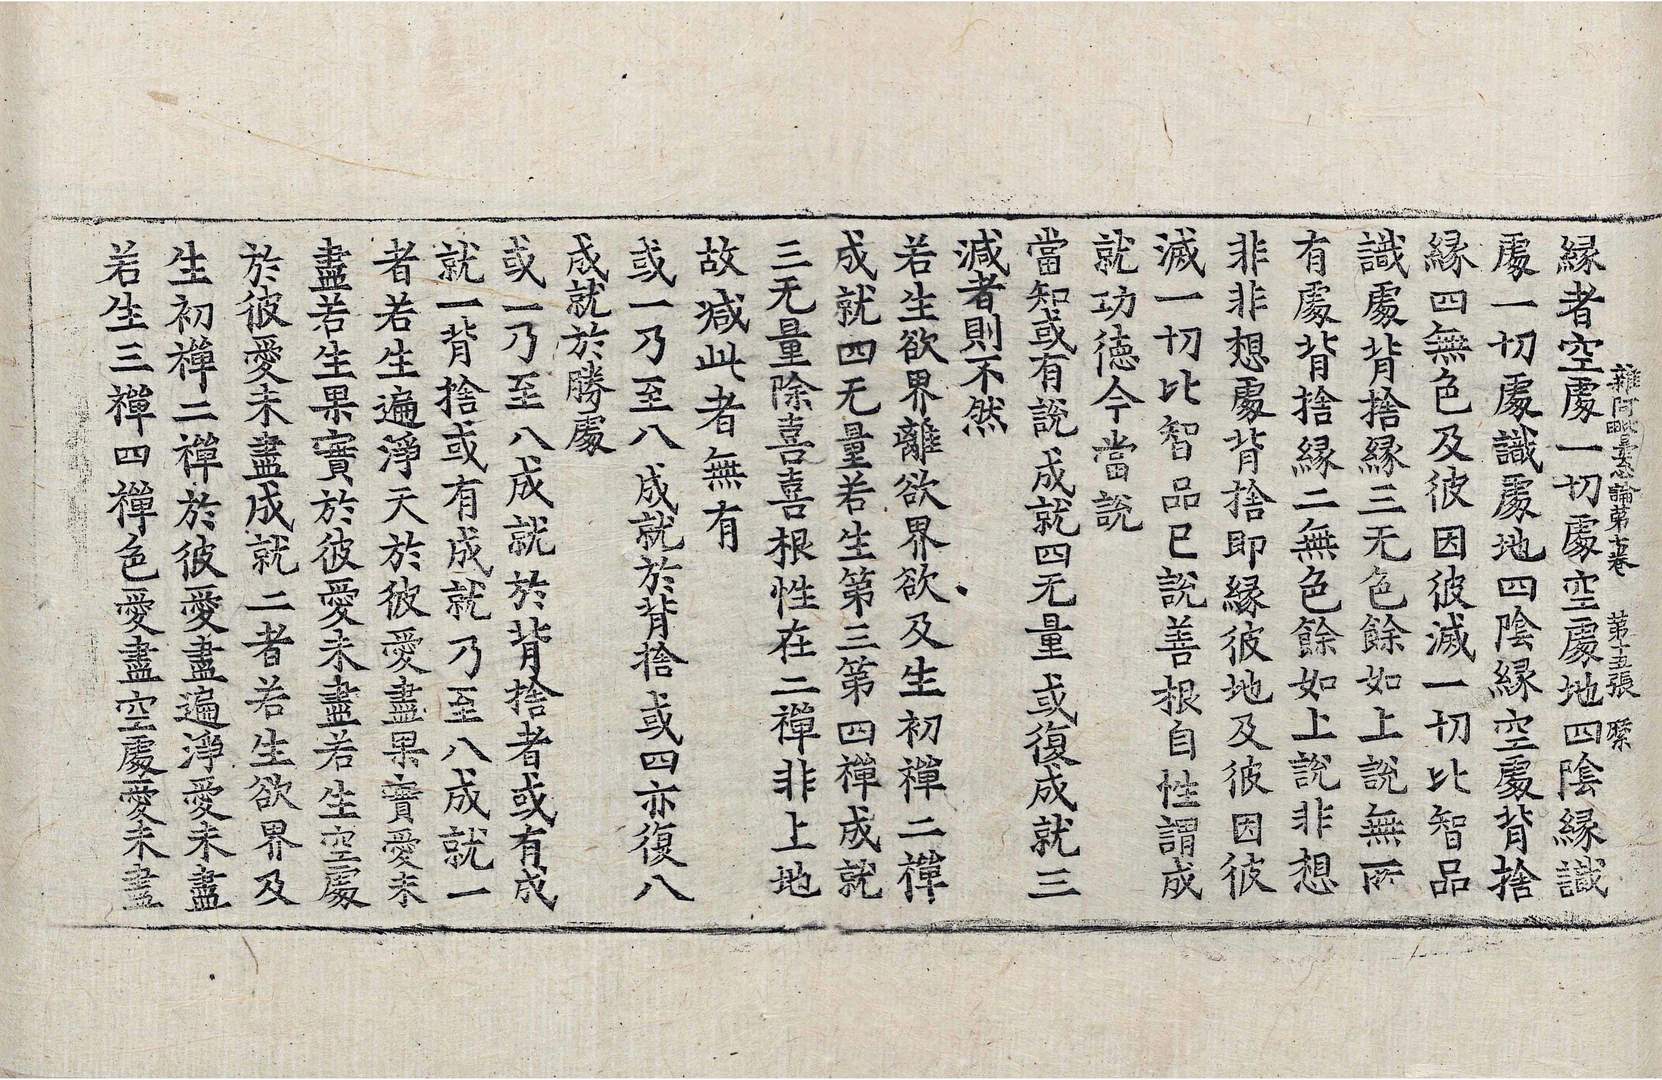 雜阿毗曇心論第七卷 第十五張
緣者空處一切處空處地四陰緣識
處一切處識處地四陰緣空處背捨
緣四無色及彼因彼滅一切比智品
識處背捨緣三无色餘如上說無所
有處背捨緣二無色餘如上說非想
非非想處背捨即緣彼地及彼因彼
滅一切比智品已說善根自性謂成
就功德今當說
當知或有說 成就四无量 或復成就三
減者則不然
若生欲界離欲界欲及生初禪二禪
成就四无量若生第三第四禪成就
三无量除喜喜根性在二禪非上地
故減此者無有
或一乃至八 成就於背捨 或四亦復八
成就於勝處
或一乃至八成就於背捨者或有成
就一背捨或有成就乃至八成就一
者若生遍淨天於彼愛盡果實愛未
盡若生果實於彼愛未盡若生空處
於彼愛未盡成就二者若生欲界及
生初禪二禪於彼愛盡遍淨愛未盡
若生三禪四禪色愛盡空處愛未盡